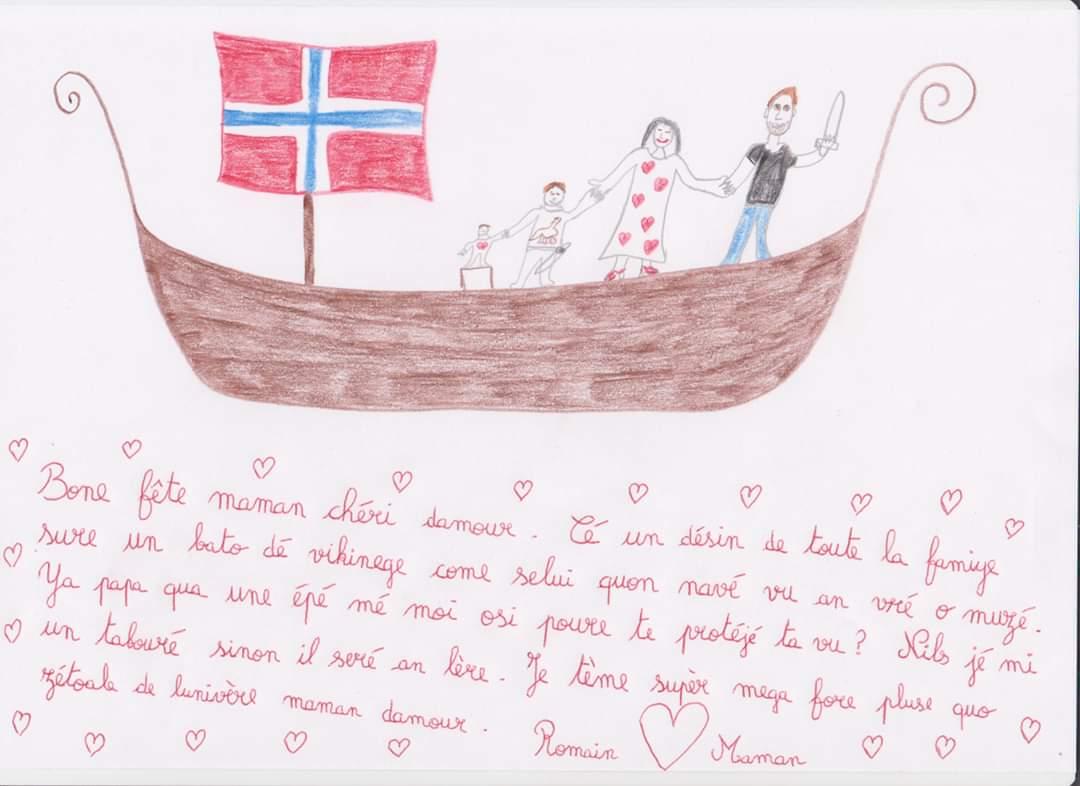 Bone fête maman chéri damour. Cé un désin de toute la famiye
sure un bato dé vikinege come selui quon navé vu an vré o muzé.
Ya papa qua une épé mé moi osi poure te protéjé ta vu? Nils jé mi
un tabouré sinon il seré an lère. Je tème supèr mega fore pluse quo
zétoale de lunivère maman damour.
Romain Maman